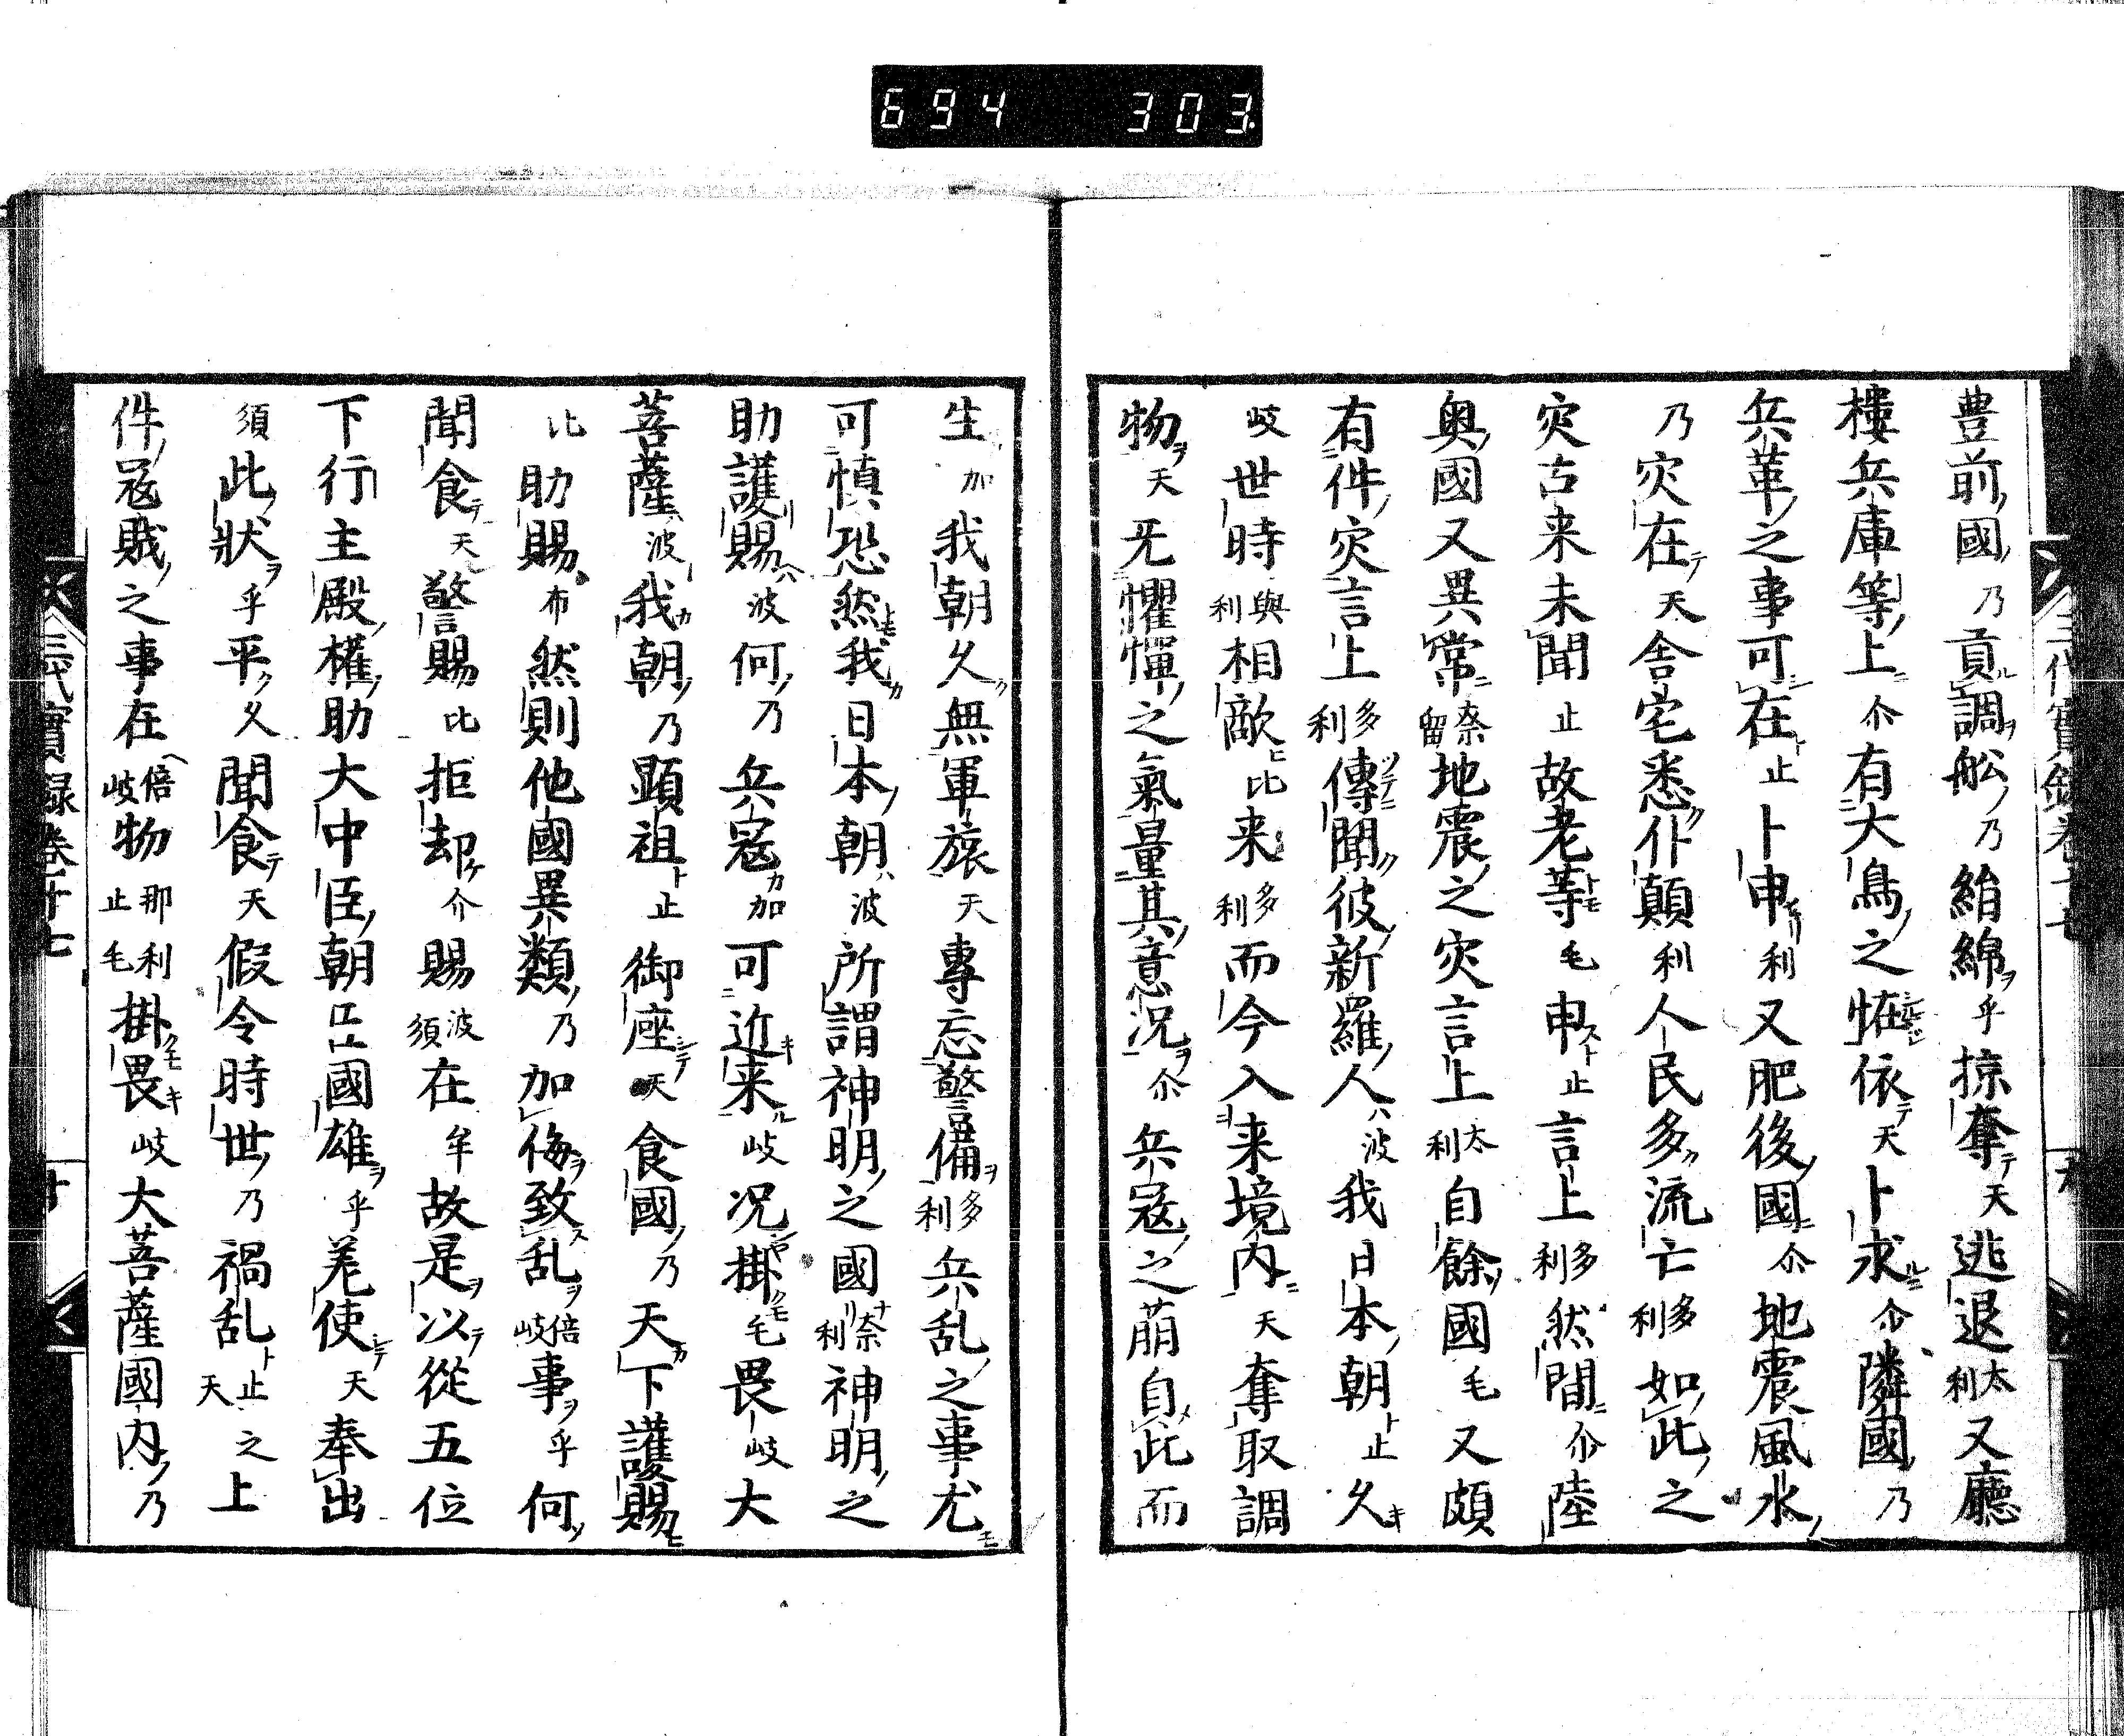 694 303
豊前國乃貢調舩乃絹綿乎掠奪天逃退太利又廳
樓兵庫等上尒有大鳥之恠依天卜求尒隣國乃
兵革之事可在止卜申利又肥後國尒地震風水
乃灾在天舎宅悉仆顛利人民多流亡多利如此之
灾古来未聞止故老等毛申止言上多利然間尒陸
奥國又異常奈留地震之灾言上太利自餘國毛又頗
有件灾言上多利傳聞彼新羅人波我日本朝止久
岐世時與利相敵比来多利而今入来境内天奪取調
物天旡懼憚之氣量其意况尒兵寇之萠自此而
生加我朝久無軍旅天專忘警備多利兵乱之事尤
可慎恐然我日本朝波所謂神明之國奈利神明之
助護賜波何乃兵寇加可近来岐况掛毛畏岐大
菩薩波我朝乃顕祖止御座天食國乃天下護賜
比助賜布然則他國異類乃加侮致乱倍岐事乎何
聞食天警賜比拒却介賜波須在牟故是以從五位
下行主殿權助大中臣朝臣國雄乎差使天奉出
須此狀乎平久聞食天假令時世乃禍乱止天之上
件寇賊之事在倍岐物那利止毛掛畏岐大菩薩國内乃
三代實録卷二十七